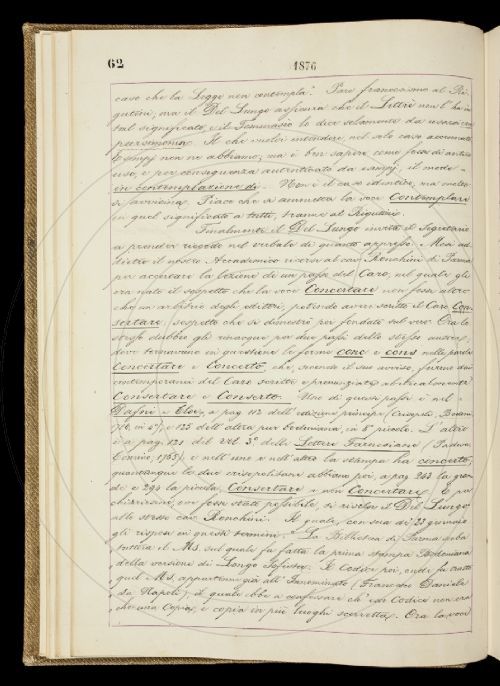 62
1876
caso che la Legge non contempla". Pare francesismo al Ri-
gutini, ma il Del Lungo assicura che il Littré non l'ha in
tal significato, e il Tommaseo lo dice solamente da usarsi con
parsimonia. Il che vuolsi intendere, nel solo caso accennato.
Esempj non ne abbiamo; ma è ben sapere come fosse di antico
uso, e per conseguenza autenticato da esempj, il modo
in contemplazione di. Non è il caso identico, ma molto
si avvicina. Piace che si ammetta la voce Contemplare
in quel significato a tutti, tranne al Rigutini.
Finalmente il Del Lungo invita il Segretario
a prender ricordo nel verbale di quanto appresso. Mesi ad-
dietro il nostro Accademico ricorse al cav. Ronchini di Parma
per accertare la lezione di un passo del Caro, nel quale gli
era nato il sospetto che la voce Concertare non fosse altro
che un arbitrio degli editori, potendo aver scritto il Caro Con-
sertare, sospetto che si dimostrò poi fondato sul vero. Ora lo
stesso dubbio gli rinacque per due passi dello stesso autore,
dove tornavano in questione le forme conc e cons nelle parole
Concertare e Concerto, che, secondo il suo avviso, furono dai
contemporanei del Caro scritte e pronunziate abitualmente
Consertare e Conserto. Uno di questi passi è nel
Dafni e Cloe, a pag. 112 dell'edizione principe (Crisopoli, Bodoni
786, in 4°), e 125 dell'altra pur bodoniana, in 8° piccolo. L'altro
è a pag. 121 del Vol. 3° delle Lettere Farnesiane (Padova,
Comino, 1765), e nell'uno e nell'altro la stampa ha concerto,
quantunque le due crisopolitane abbiano poi, a pag. 243 la gran-
de e 294 la piccola, Consertare e non Concertare. E per
chiarirsene, ove fosse stato possibile, si rivolse il Del Lungo
allo stesso cav. Ronchini. Il quale, con sua de' 23 gennajo
gli rispose in questi termini: "La Biblioteca di Parma serba
tuttora il Ms. sul quale fu fatta la prima stampa Bodoniana
della versione di Longo Sofista. Il Codice poi, onde fu tratto
quel Ms, apparteneva già all'Innominato (Francesco Daniele
da Napoli), il quale ebbe a confessare ch' esso Codice non era
che una Copia, e copia in più luoghi scorretta. Ora la voce